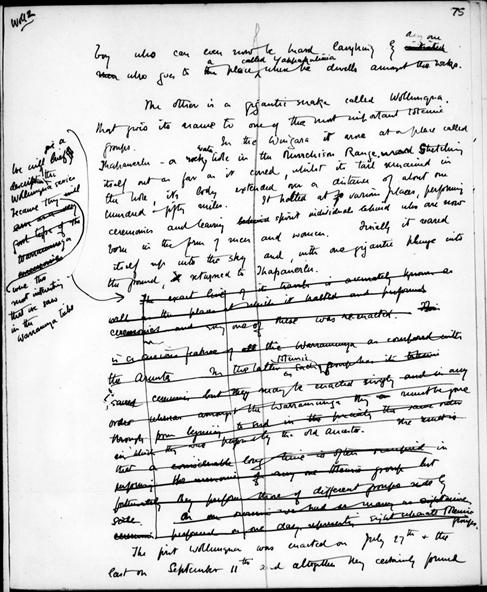 Woll 2
75
boy who can even now be heard laughing by any one
who goes to a place, called Yappakulinia where he dwells amongst the rocks.
The other is a gigantic snake called Wollunqua.
that gives its name to one of the most important totemic
groups. In the Wingara it arose at a place called
Thapauerlu - a rocky water hole in the Murchison Range, stretching
itself out as far as it could, whilst its tail remained in
the hole, its body extended over a distance of about one
hundred, fifty miles. It halted at various places, performing
ceremonies and leaving spirit individuals behind who are now
born in the form of men and women. Finally it reared
itself up into the sky and, with one gigantic plunge into
the ground, returned to Thapauerlu.
We will
description
Wollunqua series
because they will
were the
most interesting
that we saw
in the
Warramunga tribe
The exact line of its travels is accurately known as
well as the places at which it halted and performed
ceremonies and any one of these was re-enacted. This
is a curious feature of all the Warramunga as compared with
the Arunta. In the latter totemic group has its
ceremonies but they may be enacted singly and in any
order whereas amongst the Warramunga they must be gone
through from beginning to end in precisely the same order
in which they were performed by the old Ancestor. The result is
that a considerable long time is often occupied in
performing the ceremonies of any one totemic group but
fortunately they perform those of different groups side by
side. On one occasion we had as many as
ceremonies performed on one day representing eight totemic groups.
The first Wollunqua was enacted on July 27th & the
last on September 11th and altogether they certainly formed